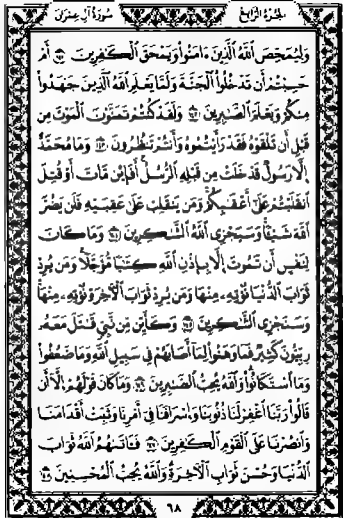 سُورَةُ آلِ عِمْرَانَ الجُزْءُ الرَّابِعُ
وَلِيُمَحِّصَ ٱللَّهُ ٱلَّذِينَ ءَامَنُوا۟ وَيَمْحَقَ ٱلْكَٰفِرِينَ ١٤١ أَمْ
حَسِبْتُمْ أَن تَدْخُلُوا۟ ٱلْجَنَّةَ وَلَمَّا يَعْلَمِ ٱللَّهُ ٱلَّذِينَ جَٰهَدُوا۟
مِنكُمْ وَيَعْلَمَ ٱلصَّٰبِرِينَ ١٤٢ وَلَقَدْ كُنتُمْ تَمَنَّوْنَ ٱلْمَوْتَ مِن
قَبْلِ أَن تَلْقَوْهُ فَقَدْ رَأَيْتُمُوهُ وَأَنتُمْ تَنظُرُونَ ١٤٣ وَمَا مُحَمَّدٌ
إِلَّا رَسُولٌ قَدْ خَلَتْ مِن قَبْلِهِ ٱلرُّسُلُ أَفَإِي۟ن مَّاتَ أَوْ قُتِلَ
ٱنقَلَبْتُمْ عَلَىٰٓ أَعْقَٰبِكُمْ وَمَن يَنقَلِبْ عَلَىٰ عَقِبَيْهِ فَلَن يَضُرَّ
ٱللَّهَ شَيْـًٔا وَسَيَجْزِى ٱللَّهُ ٱلشَّٰكِرِينَ ١٤٤ وَمَا كَانَ
لِنَفْسٍ أَن تَمُوتَ إِلَّا بِإِذْنِ ٱللَّهِ كِتَٰبًا مُّؤَجَّلًا وَمَن يُرِدْ
ثَوَابَ ٱلدُّنْيَا نُؤْتِهِۦ مِنْهَا وَمَن يُرِدْ ثَوَابَ ٱلْءَاخِرَةِ نُؤْتِهِۦ مِنْهَا
وَسَنَجْزِى ٱلشَّٰكِرِينَ ١٤٥ وَكَأَيِّن مِّن نَّبِىٍّ قَٰتَلَ مَعَهُۥ
رِبِّيُّونَ كَثِيرٌ فَمَا وَهَنُوا۟ لِمَآ أَصَابَهُمْ فِى سَبِيلِ ٱللَّهِ وَمَا ضَعُفُوا۟
وَمَا ٱسْتَكَانُوا۟ وَٱللَّهُ يُحِبُّ ٱلصَّٰبِرِينَ ١٤٦ وَمَا كَانَ قَوْلَهُمْ إِلَّآ أَن
قَالُوا۟ رَبَّنَا ٱغْفِرْ لَنَا ذُنُوبَنَا وَإِسْرَافَنَا فِىٓ أَمْرِنَا وَثَبِّتْ أَقْدَامَنَا
وَٱنصُرْنَا عَلَى ٱلْقَوْمِ ٱلْكَٰفِرِينَ ١٤٧ فَـَٔاتَىٰهُمُ ٱللَّهُ ثَوَابَ
ٱلدُّنْيَا وَحُسْنَ ثَوَابِ ٱلْءَاخِرَةِ وَٱللَّهُ يُحِبُّ ٱلْمُحْسِنِينَ ١٤٨
٦٨